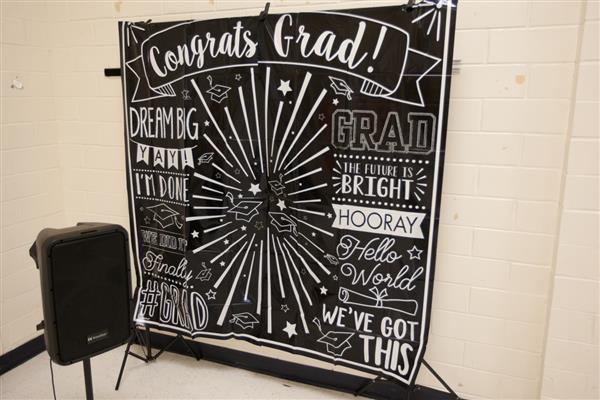 Congrats Grad!
DREAM BIG
YAY!
I'M DONE
WE DID IT
Finally
#GRAD
GRAD
THE FUTURE IS
BRIGHT
HOORAY
Hello
World
WE'VE GOT
THIS